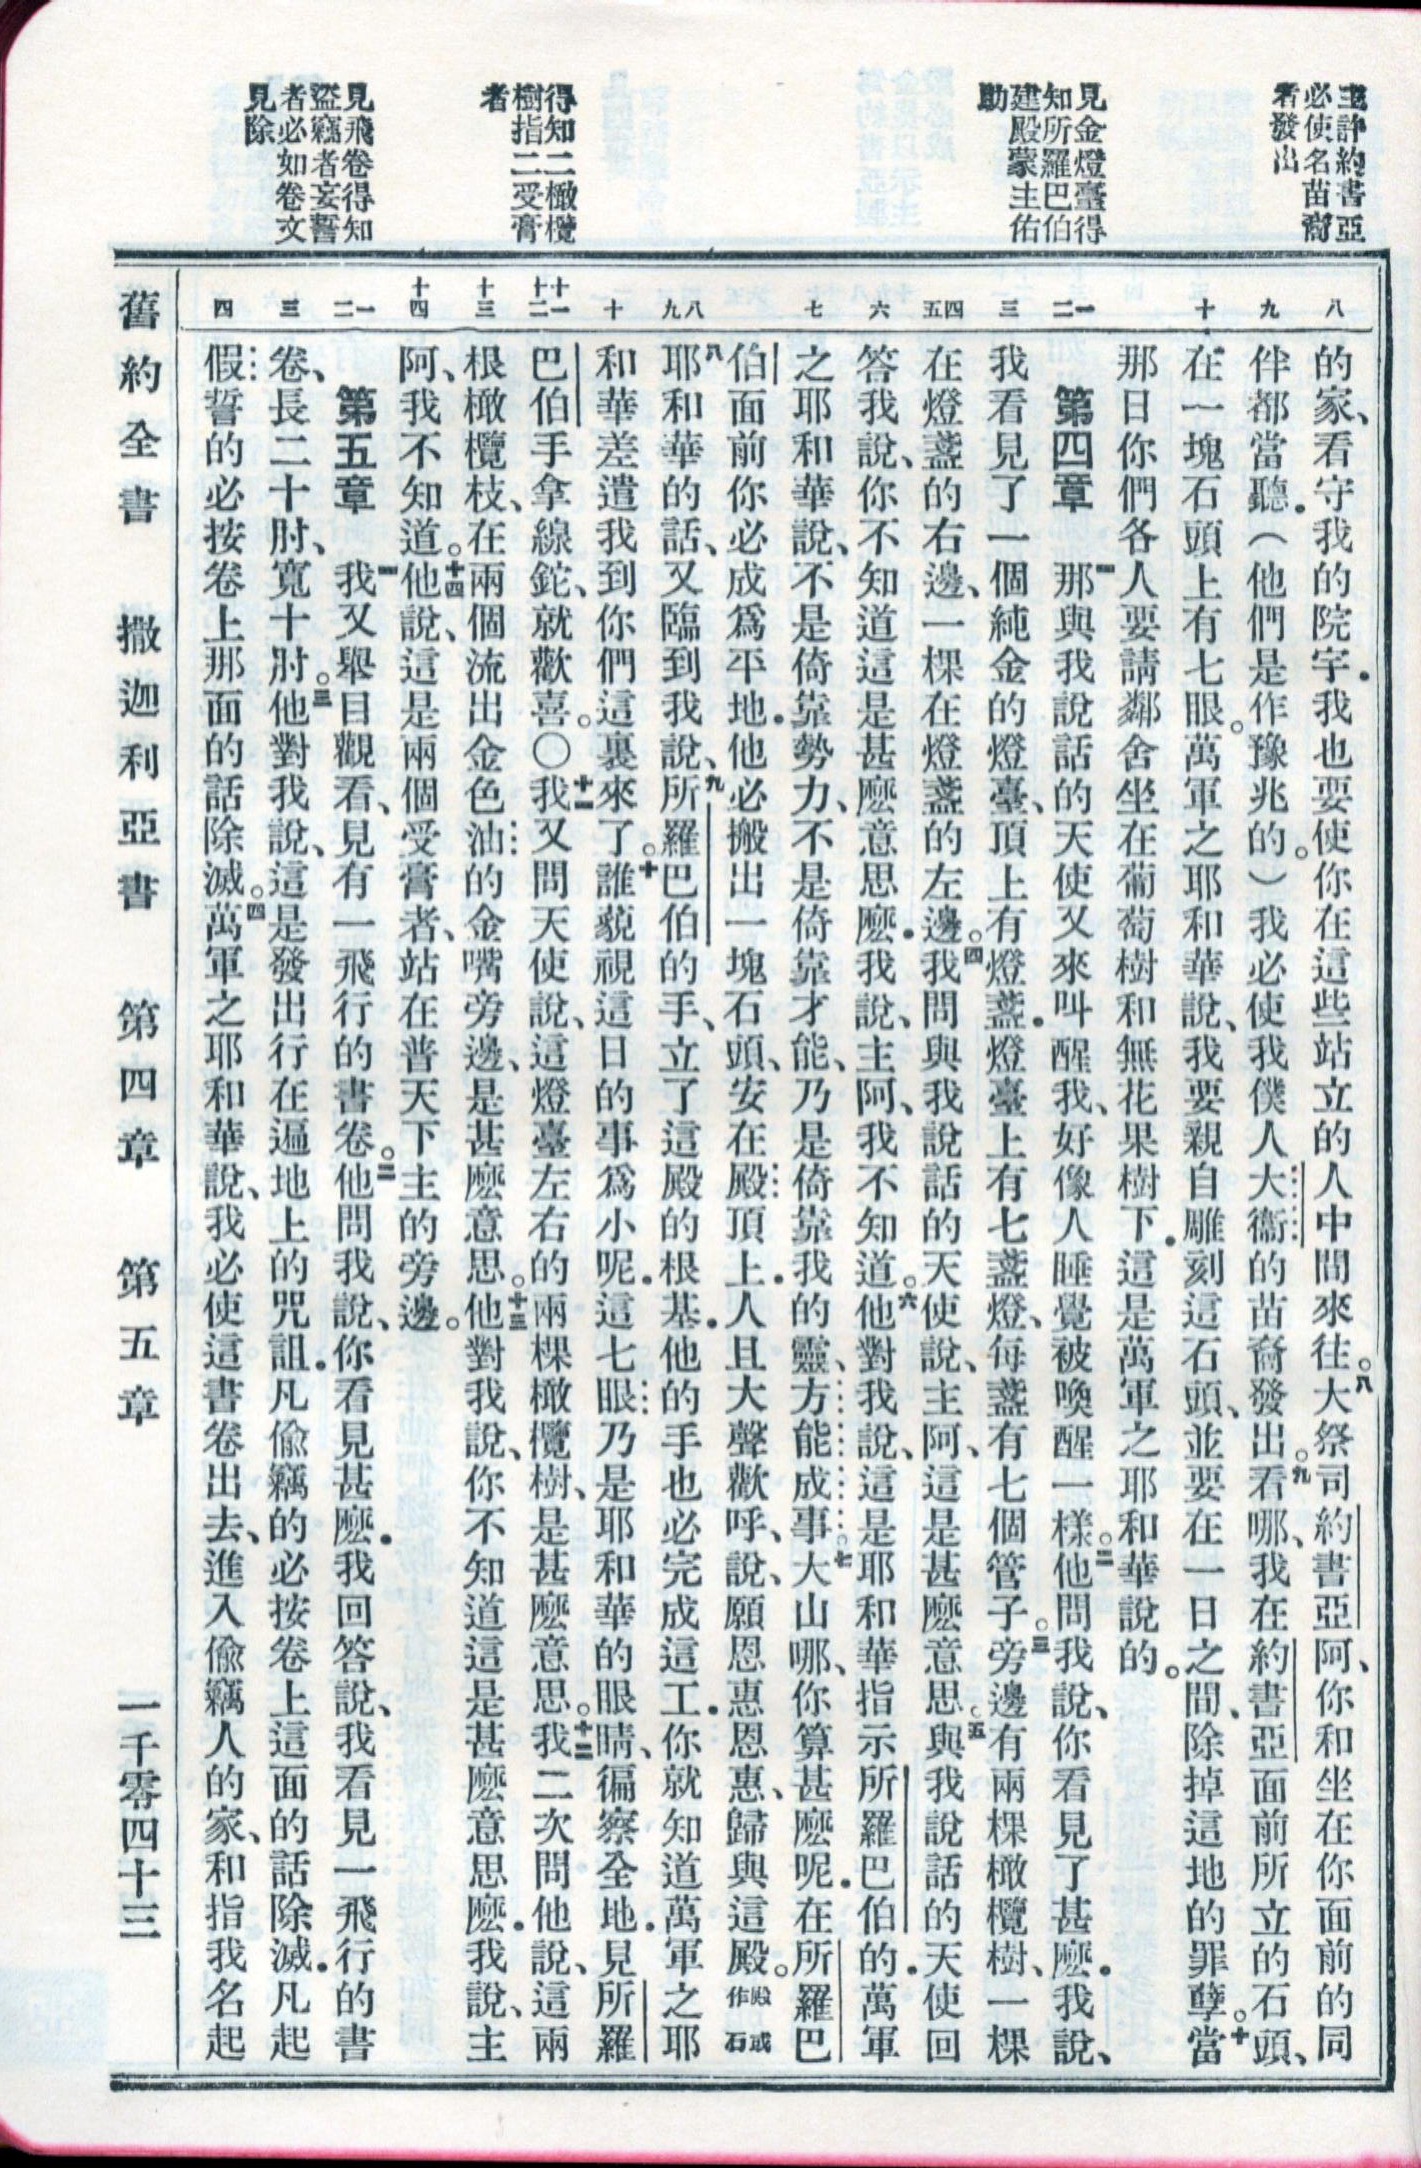 主許約書亞
必使名苗裔
者發出
見金燈臺得
知所羅巴伯
建殿蒙主佑
助
得知二橄欖
樹指二受膏
者
見飛卷得知
盜竊者妄誓
者必如卷文
見除
八
九
十
一二
三
四五
六
七
八九
十
十一十二
十三
十四
一二
三
四
的家、看守我的院宇．我也要使你在這些站立的人中間來往。八大祭司約書亞阿、你和坐在你面前的同
伴都當聽．（他們是作豫兆的。）我必使我僕人大衞的苗裔發出。九看哪、我在約書亞面前所立的石頭、
在一塊石頭上有七眼。萬軍之耶和華說、我要親自雕刻這石頭、並要在一日之間、除掉這地的罪孽。十當
那日你們各人要請鄰舍坐在葡萄樹和無花果樹下．這是萬軍之耶和華說的。
第四章 一那與我說話的天使又來叫醒我、好像人睡覺被喚醒一樣。二他問我說、你看見了甚麼．我說、
我看見了一個純金的燈臺、頂上有燈盞．燈臺上有七盞燈、每盞有七個管子。三旁邊有兩棵橄欖樹、一棵
在燈盞的右邊、一棵在燈盞的左邊。四我問與我說話的天使說、主阿、這是甚麼意思。五與我說話的天使回
答我說、你不知道這是甚麼意思麼．我說、主阿、我不知道。六他對我說、這是耶和華指示所羅巴伯的．萬軍
之耶和華說、不是倚靠勢力、不是倚靠才能、乃是倚靠我的靈、方能成事。七大山哪、你算甚麼呢．在所羅巴
伯面前你必成爲平地．他必搬出一塊石頭、安在殿頂上．人且大聲歡呼、說、願恩惠恩惠、歸與這殿。殿或作石
八耶和華的話、又臨到我說、九所羅巴伯的手、立了這殿的根基．他的手也必完成這工．你就知道萬軍之耶
和華差遣我到你們這裏來了。十誰藐視這日的事爲小呢．這七眼乃是耶和華的眼睛、徧察全地．見所羅
巴伯手拿線鉈、就歡喜。〇十一我又問天使說、這燈臺左右的兩棵橄欖樹、是甚麼意思。十二我二次問他說、這兩
根橄欖枝、在兩個流出金色油的金嘴旁邊、是甚麼意思。十三他對我說、你不知道這是甚麼意思麼．我說、主
阿、我不知道。十四他說、這是兩個受膏者、站在普天下主的旁邊。
第五章 一我又舉目觀看、見有一飛行的書卷。二他問我說、你看見甚麼．我回答說、我看見一飛行的書
卷、長二十肘、寬十肘。三他對我說、這是發出行在遍地上的咒詛．凡偷竊的必按卷上這面的話除滅．凡起
假誓的必按卷上那面的話除滅。四萬軍之耶和華說、我必使這書卷出去、進入偷竊人的家、和指我名起
舊約全書 撒迦利亞書 第四章 第五章 一千零四十三